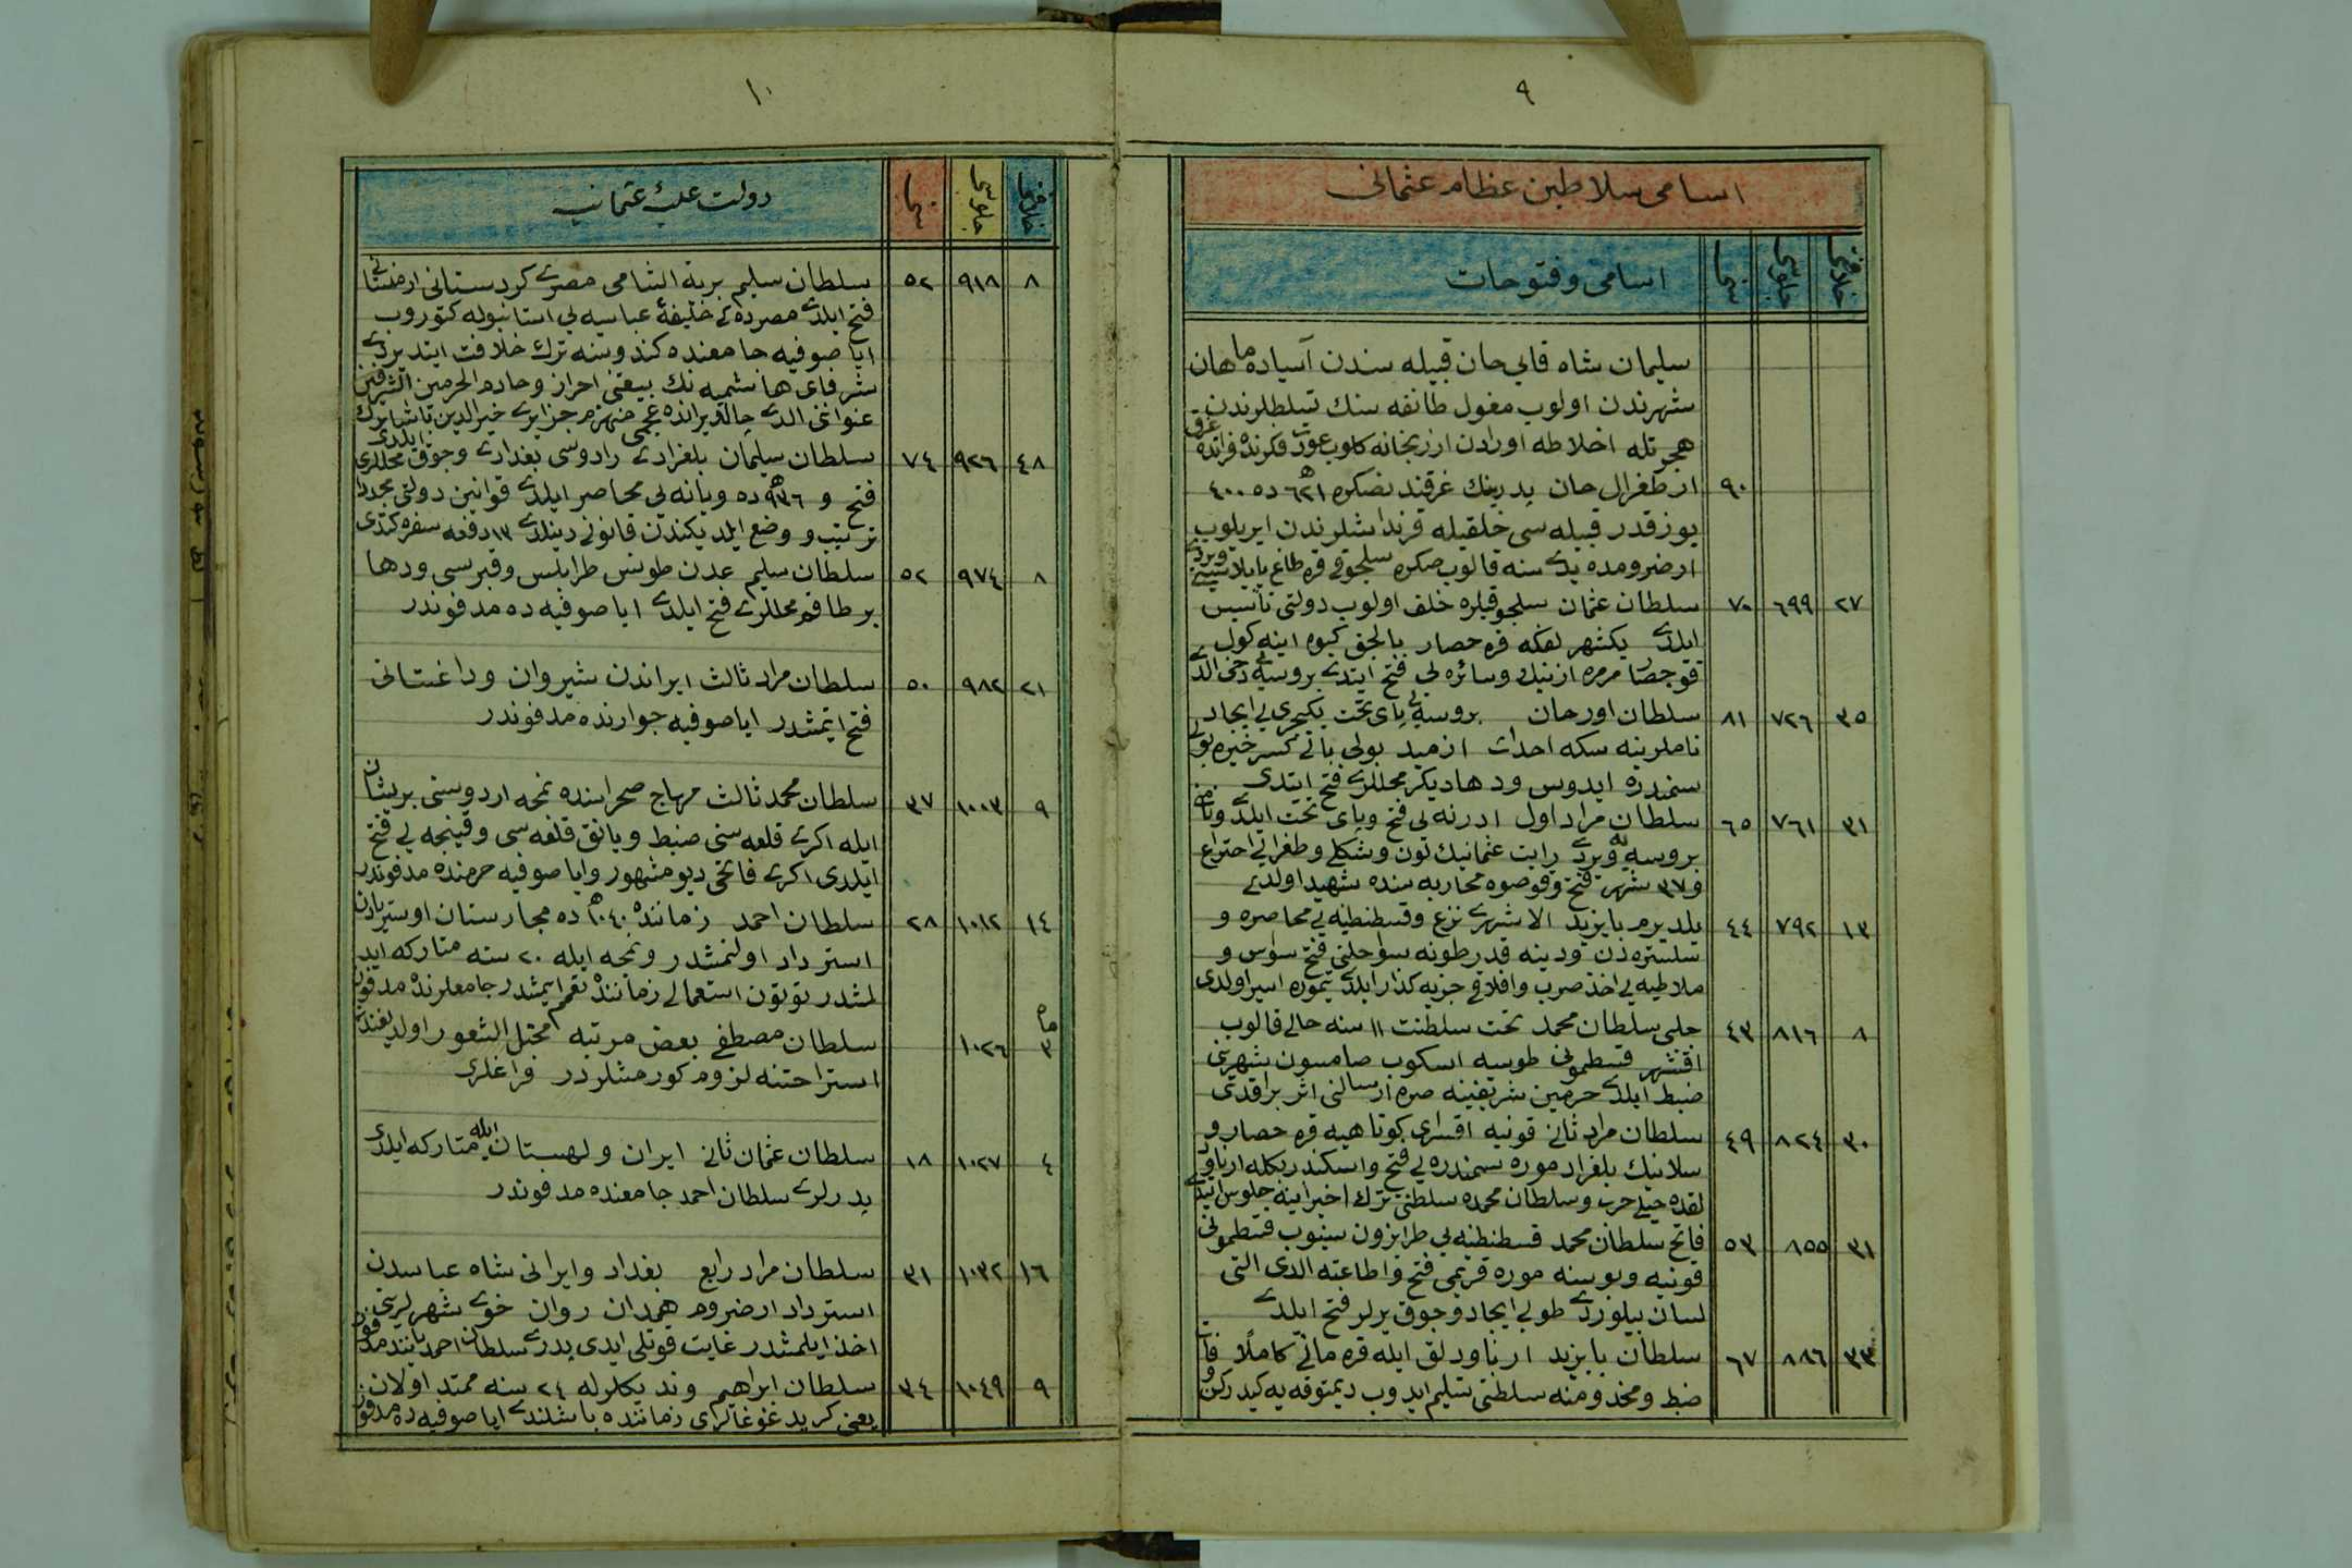 ٩
اسامی سلاطین عظام عثمانی
خلافتی جلوسی سنی اسامی و فتوحات
سلیمان شاه قایی خان قبیله سندن آسیاده ماهان
شهرندن اولوب مغول طائفه سنك تسلطلرندن
هجرتله اخلاطه اورادن ارزنجانه کلوب عودت فکرنده فراتده غرق
٩٠ ارطغرل خان پدرینك غرقندنصکره ٦٢١ ده ٤٠٠
یوز قدر قبیله سی خلقیله قرنداشلرندن ایریلوب
ارضرومده یدی سنه قالوب صکره سلجوقی قره طاغ یایلاسنی ویردی
٢٧ ٦٩٩ ٧٠ سلطان عثمان سلجوقیلره خلف اولوب دولتی تأسیس
ایلدی یکیشهر لفکه قره حصار بالجق کیوه اینه کول
قوجحصار مرمره ازنیك وسائره لی فتح ایتدی بروسه یی دخی الدی
٣٥ ٧٢٦ ٨١ سلطان اورخان بروسه یی پای تخت یکیچری لی ایجاد
ناملرینه سکه احداث ازمید بولی بالی کسر خیره بولی
سمندره ایدوس ودها دیکر محللری فتح ایتدی
٣١ ٧٦١ ٦٥ سلطان مراد اول ادرنه لی فتح و پای تخت ایلدی ونامی
بروسه یه ویردی رایت عثمانینك لون وشکلی وطغرایی اختراع
و ٣٧ شهر فتح وقوصوه محاربه سنده شهید اولدی
١٣ ٧٩٢ ٤٤ یلدیرم بایزید الاشهری نزع وقسطنطنیه لی محاصره و
سلستره دن ودینه قدر طونه سواحلنی فتح سواس و
ملاطیه لی اخذ صرب وافلاقی جزیه کذار ایلدی تیموره اسیر اولدی
٨ ٨١٦ ٤٣ چلبی سلطان محمد تخت سلطنت ١١ سنه خالی قالوب
اقشهر قسطمونی طوسیه اسکوب صامسون شهرینی
ضبط ایلدی حرمین شریفینه صره ارسالنی اثر براقدی
٣٠ ٨٢٤ ٤٩ سلطان مراد ثانی قونیه اقسرای کوتاهیه قره حصار و
سلانیك بلغراد موره سمندره لی فتح واسکندر بکله ارناود
لقده خیلی حرب وسلطان محمده سلطنتی ترك اخیرا ینه جلوس ایتدی
٣١ ٨٥٥ ٥٣ فاتح سلطان محمد قسطنطنیه لی طرابزون سینوب قسطمونی
قونیه وبوسنه موره قریمی فتح واطاعته الدی التی
لسان بیلوردی طوپی ایجاد وچوق یرلر فتح ایلدی
٣٣ ٨٨٦ ٦٧ سلطان بایزید ارناودلق ایله قره مانی کاملًا
ضبط ومخدومنه سلطنتی تسلیم ایدوب دیمتوقه یه کیدرکن
١٠
خلافتی جلوسی سنی دولت علیه عثمانیه
٨ ٩١٨ ٥٢ سلطان سلیم بریة الشامی مصری کردستانی ارمنستانی
فتح ایلدی مصرده کی خلیفهٔ عباسیه لی استانبوله کتوروب
ایاصوفیه جامعنده کندوسنه ترك خلافت ایتدیردی
شرفای هاشمیه نك بیعتنی احراز وخادم الحرمین الشریفین
عنواننی الدی چالدیرانده عجمی منهزم جزایری خیرالدین پاشا
٤٨ ٩٢٦ ٧٤ سلطان سلیمان بلغرادی رادوسی بغدادی وچوق محللری
فتح و ٩٣٦ ده ویانه لی محاصر ایلدی قوانین دولتی مجددا
ترتیب و وضع ایلدیکندن قانونی دینلدی ١٣ دفعه سفره کتدی
٨ ٩٧٤ ٥٢ سلطان سلیم عدن طونس طرابلس وقبرسی ودها
برطاقم محللری فتح ایلدی ایاصوفیه ده مدفوندر
٢١ ٩٨٢ ٥٠ سلطان مراد ثالث ایراندن شیروان وداغستانی
فتح ایتمشدر ایاصوفیه جوارنده مدفوندر
٩ ١٠٠٣ ٣٧ سلطان محمد ثالث مهاج صحراسنده نمچه اردوسنی پریشان
ایله اکری قلعه سنی ضبط ویانق قلعه سی وقنیجه لی فتح
ایلدی اکری فاتحی دیو مشهور وایاصوفیه حرمنده مدفوندر
١٤ ١٠١٢ ٢٨ سلطان احمد زماننده ١٠٤٠ ده مجارستان اوستریادن
استرداد اولنمشدر ونمچه ایله ٢٠ سنه متارکه اید
لمشدر توتون استعمالی زماننده تعمم ایتمشدر جامعلرنده مدفون
ماه ٣ ١٠٢٦ سلطان مصطفی بعض مرتبه مختل الشعور اولدیغندن
استراحتنه لزوم کورمشلردر فراغلری
٤ ١٠٢٧ ١٨ سلطان عثمان ثانی ایران ولهستان ایله متارکه ایلدی
پدرلری سلطان احمد جامعنده مدفوندر
١٦ ١٠٣٢ ٣١ سلطان مراد رابع بغداد وایرانی شاه عباسدن
استرداد ارضروم همدان روان خوی شهرلرینی
اخذ ایلمشدر غایت قوتلی ایدی پدری سلطان احمد یاننده مدفون
٩ ١٠٤٩ ٣٤ سلطان ابراهیم وندیکلرله ٢٤ سنه ممتد اولان
یعنی کرید غوغالری زماننده باشلندی ایاصوفیه ده مدفون